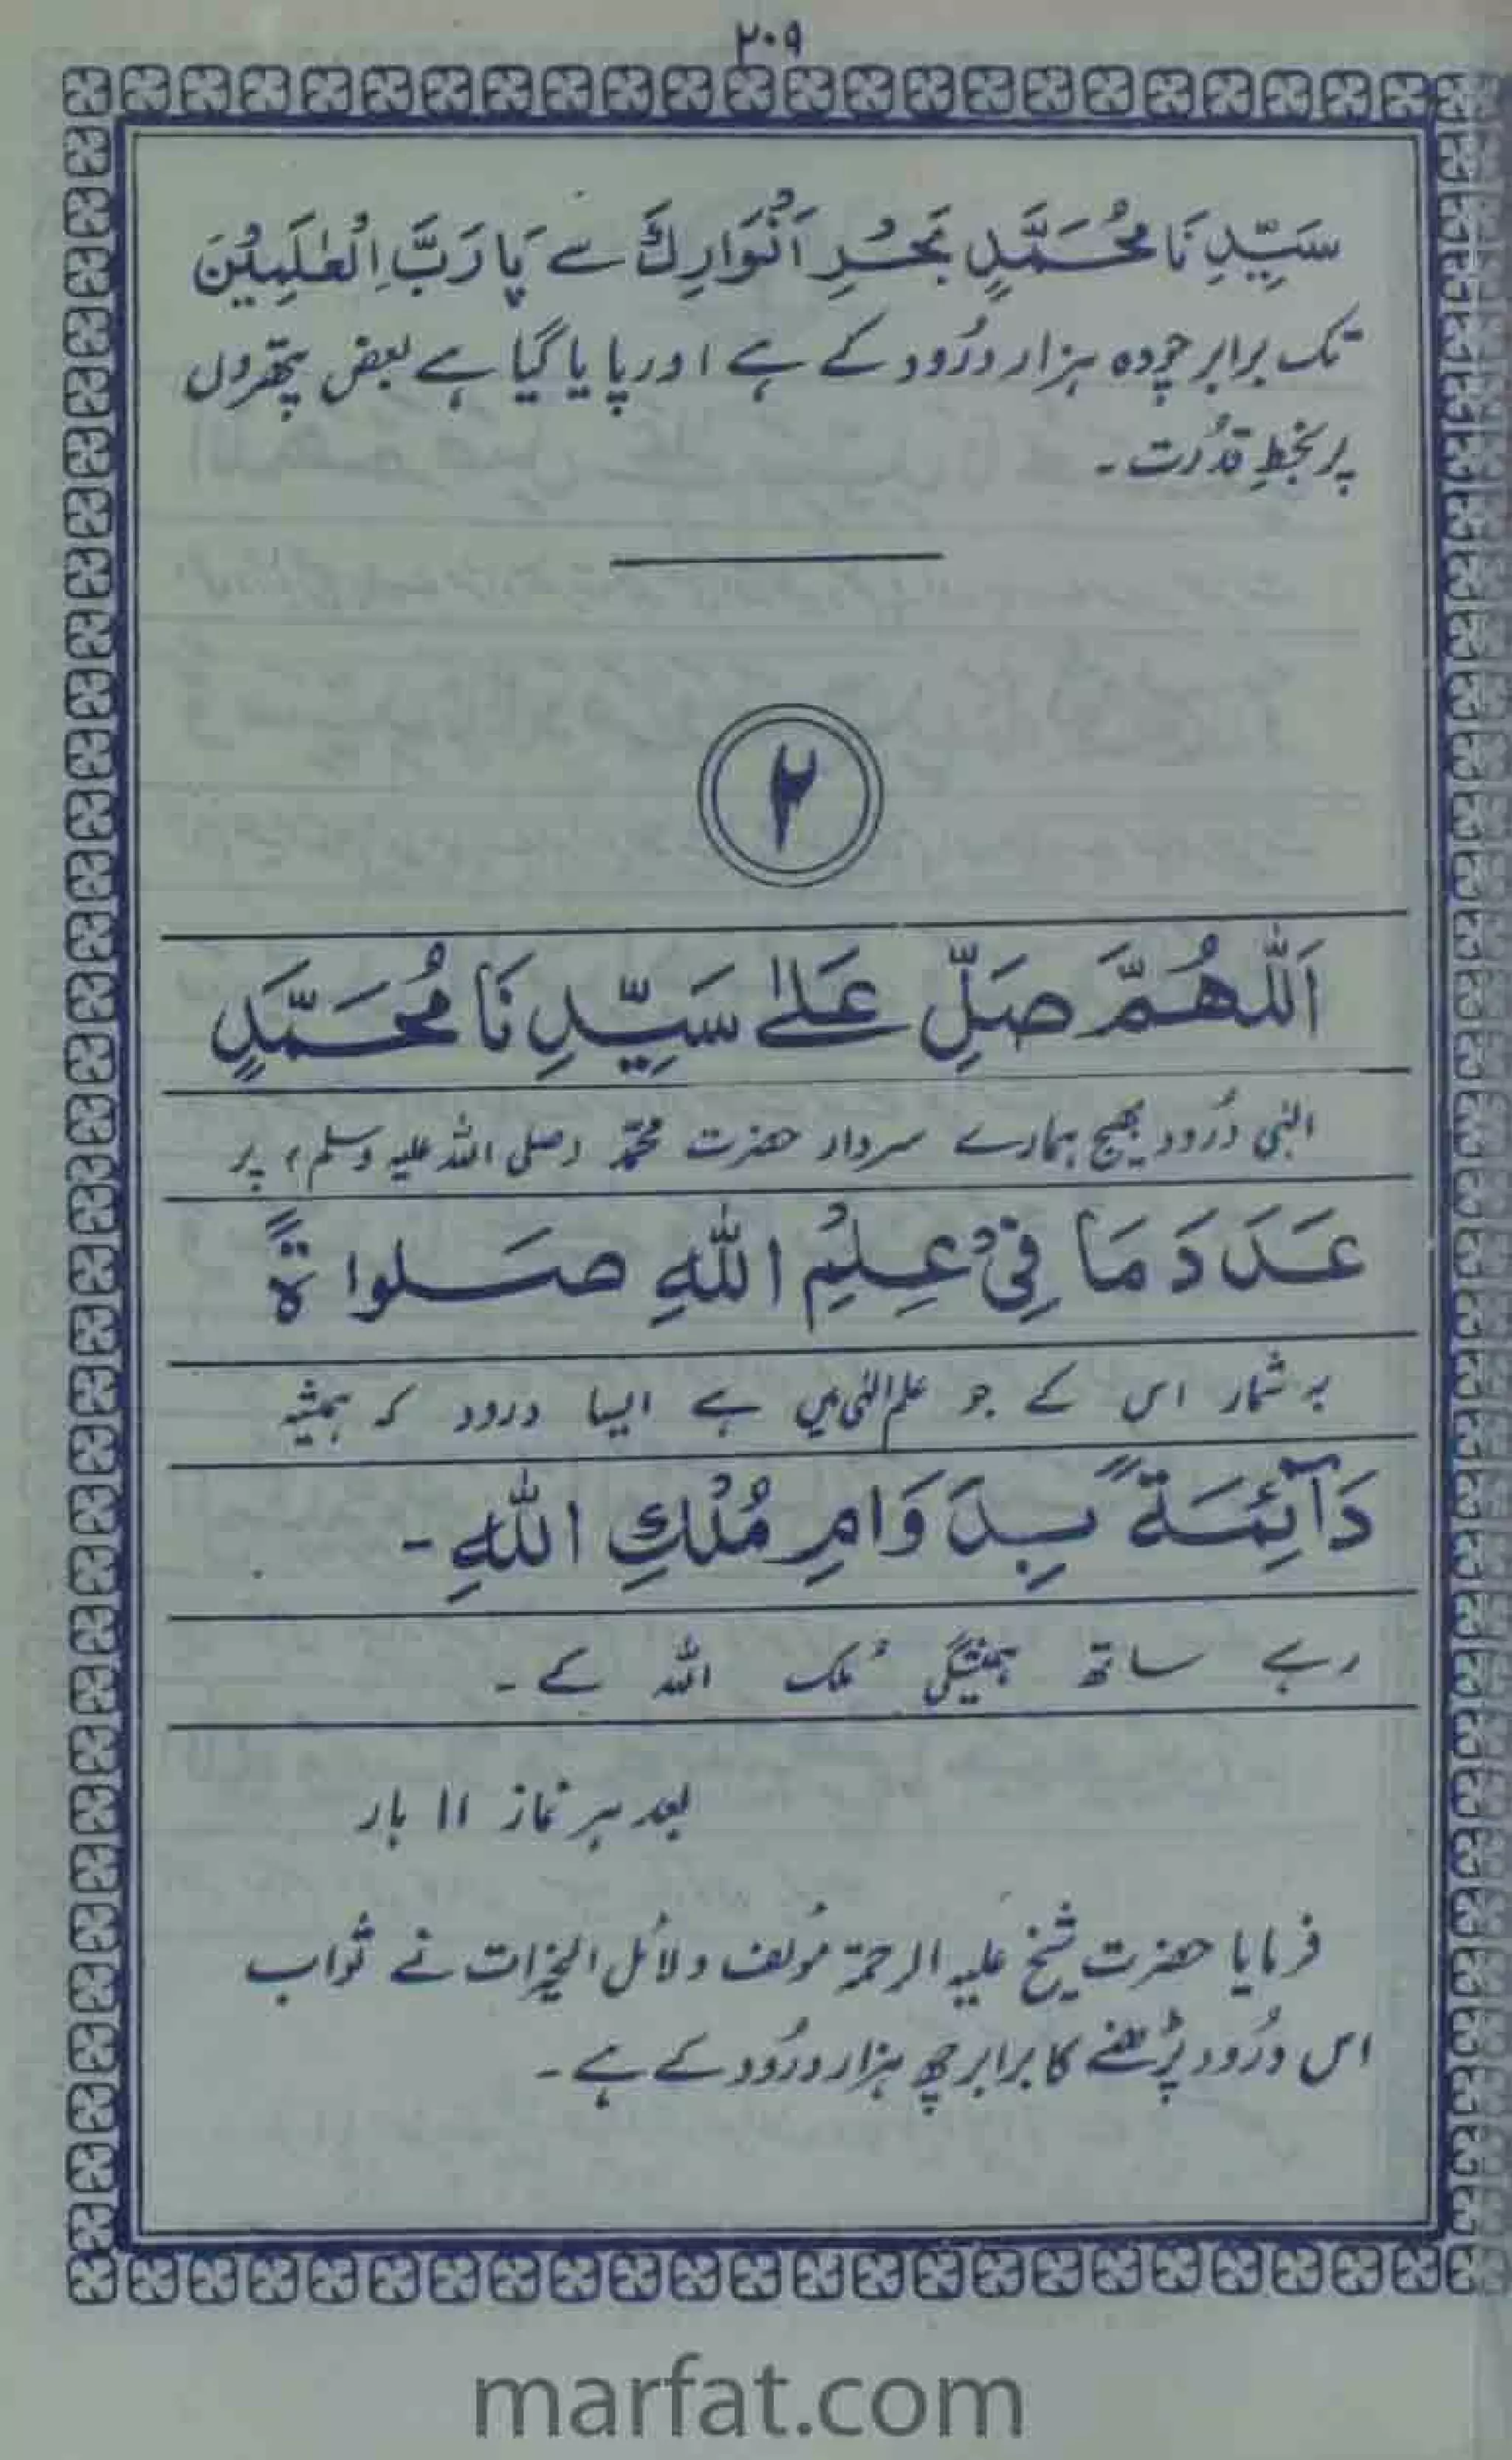 ۲۰۹
سَيِّدِنَا مُحَمَّدٍ بَحْرِ اَنْوَارِكَ سے يَا رَبَّ الْعٰلَمِيْنَ
تک برابر چودہ ہزار درُود کے ہے اور پایا گیا ہے بعض پتھروں
پر بخطِ قدُرت۔
۲
اَللّٰهُمَّ صَلِّ عَلٰى سَيِّدِنَا مُحَمَّدٍ
الٰہی دُرود بھیج ہمارے سردار حضرت محمّد (صلی اللہ علیہ وسلم) پر
عَدَدَ مَا فِيْ عِلْمِ اللّٰهِ صَلوٰةً
بہ شمار اس کے جو علم الٰہی میں ہے ایسا درود کہ ہمیشہ
دَآئِمَةً بِدَوَامِ مُلْكِ اللّٰهِ۔
رہے ساتھ ہمیشگی مُلک اللہ کے۔
بعد ہر نماز ۱۱ بار
فرمایا حضرت شیخ علیہ الرحمۃ مؤلف دلائل الخیرات نے ثواب
اس درُود پڑھنے کا برابر چھ ہزار درُود کے ہے۔
marfat.com